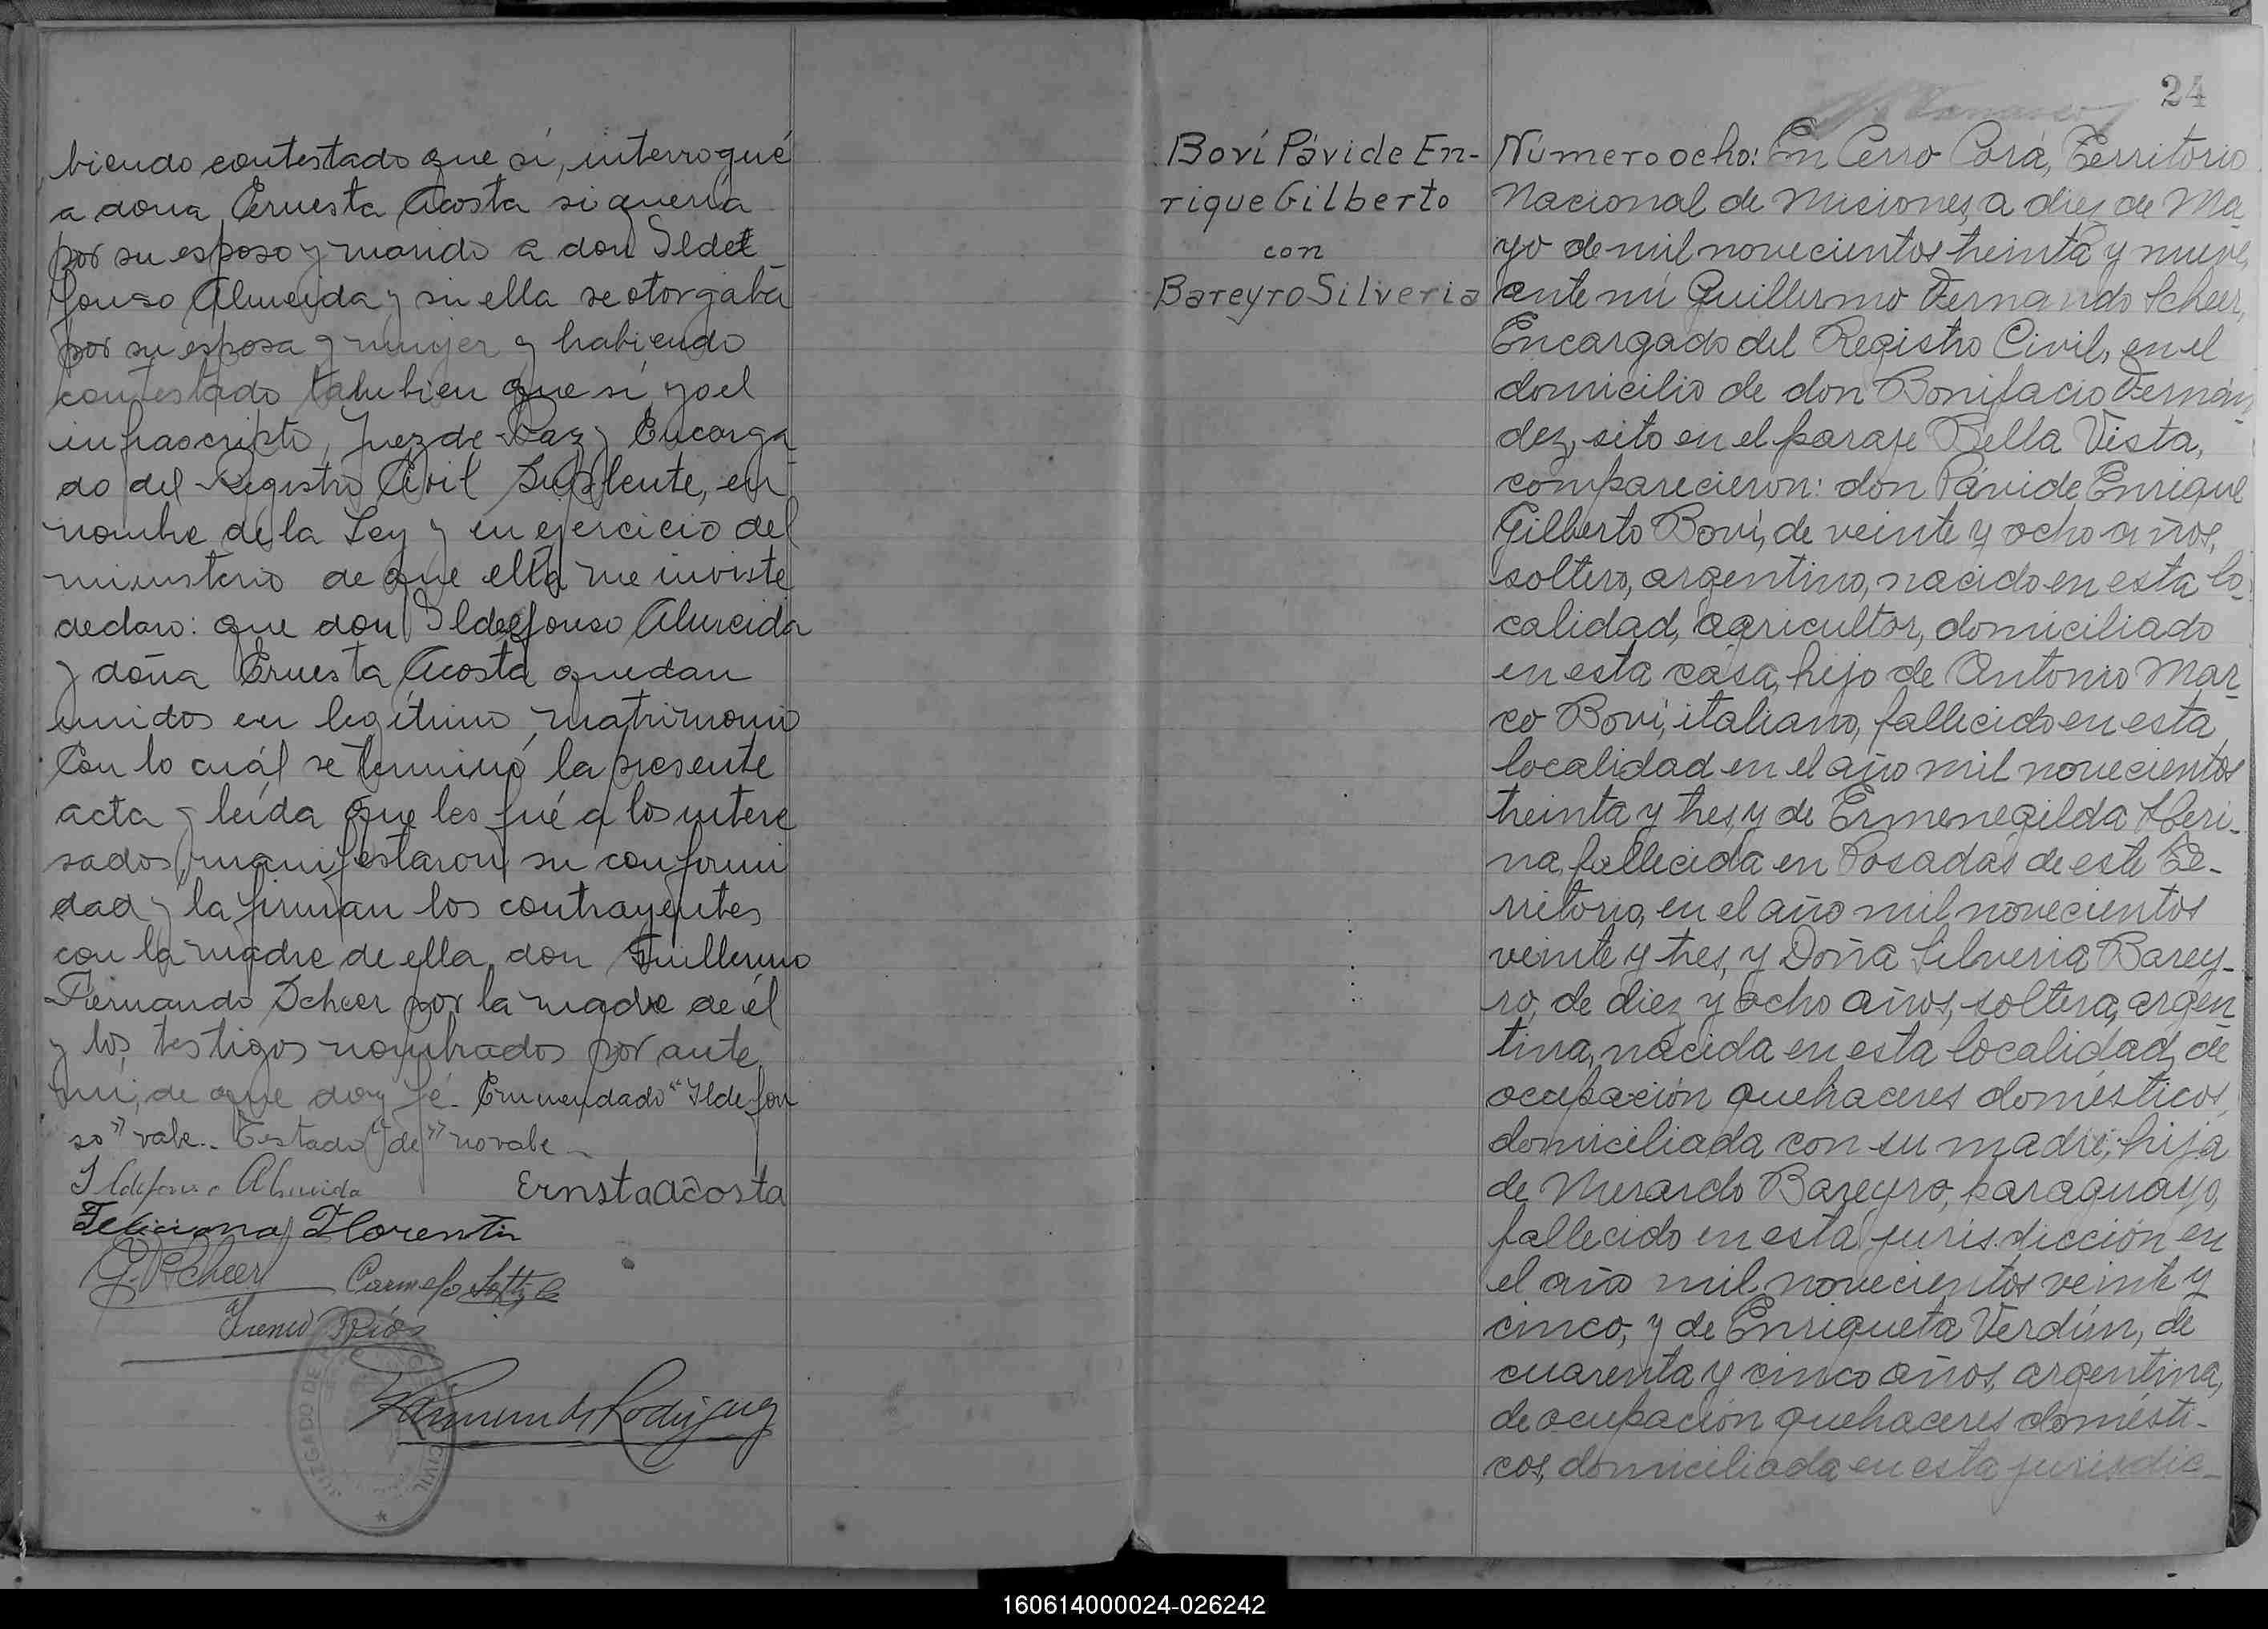 biendo contestado que sí, interrogué
a doña Ernesta Acosta si quería
por su esposo y marido a don Ilde
fonso Almeida y si ella se otorgaba
por su esposa y mujer y habiendo
contestado tambien que sí, yo el
infrascripto, Juez de Paz y Encarga
do del Registro Civil Suplente, en
nombre de la Ley y en ejercicio del
ministerio de que ella me inviste
declaro: que don Ildefonso Almeida
y doña Ernesta Acosta quedan
unidos en legítimo matrimonio
Con lo cuál se terminó la presente
acta y leída que les fué a los intere
sados, manifestaron su conformi
dad y la firman los contrayentes
con la madre de ella, don Guillermo
Fernando Scheer por la madre de él
y los testigos nombrados por ante
mí, de que doy fé. Enmendado "Ildefon
so" vale.. Testado "de" no vale
Ildefonso Almeida Ernsta acosta
Feliciana Florentin
G. F. Scheer Carmelo
Ireneo Ríos
Raimundo Rodriguez
JUZGADO DE CIVIL
24
Boví Pávide En-
rique Gilberto
con
Bareyro Silveria
Número ocho: En Cerro Corá, Territorio
Nacional de Misiones, a diez de Ma
yo de mil novecientos treinta y nueve,
ante mí Guillermo Fernando Scheer,
Encargado del Registro Civil, en el
domicilio de don Bonifacio Fernán
dez, sito en el paraje Bella Vista,
comparecieron: don Pávide Enrique
Gilberto Boví, de veinte y ocho años,
soltero, argentino, nacido en esta lo-
calidad, agricultor, domiciliado
en esta casa, hijo de Antonio Mar-
co Boví, italiano, fallecido en esta
localidad en el año mil novecientos
treinta y tres, y de Ermenegilda
na, fallecida en Posadas de este Te-
rritorio, en el año mil novecientos
veinte y tres, y Doña Silveria Barey-
ro, de diez y ocho años, soltera, argen
tina, nacida en esta localidad, de
ocupación quehaceres domésticos,
domiciliada con su madre; hija
de Merardo Bareyro, paraguayo,
fallecido en esta jurisdicción en
el año mil novecientos veinte y
cinco, y de Enriqueta Verdún, de
cuarenta y cinco años, argentina,
de ocupación quehaceres domésti-
cos, domiciliada en esta jurisdic-
160614000024-026242